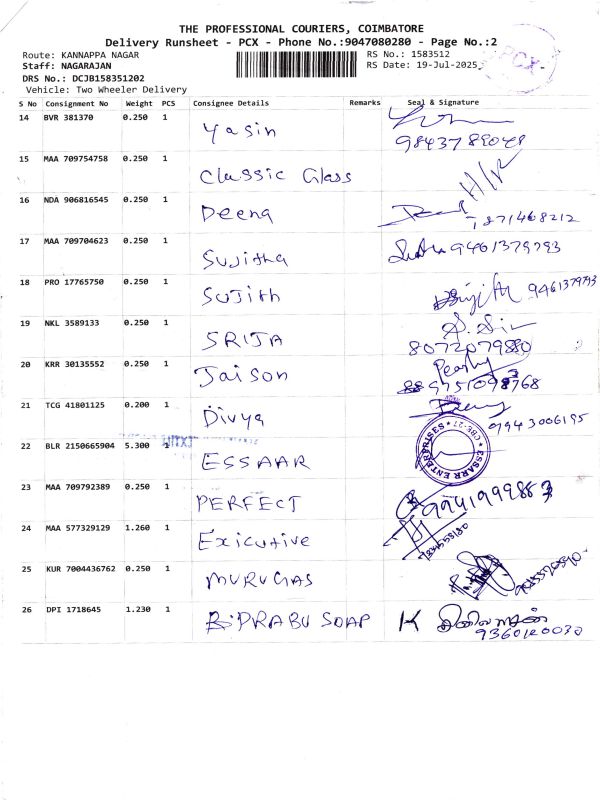 THE PROFESSIONAL COURIERS, COIMBATORE
Delivery Runsheet - PCX - Phone No.:9047080280 - Page No.:2
Route: KANNAPPA NAGAR RS No.: 1583512
Staff: NAGARAJAN RS Date: 19-Jul-2025
DRS No.: DCJB158351202
Vehicle: Two Wheeler Delivery
PCX
S No Consignment No Weight PCS Consignee Details Remarks Seal & Signature
14 BVR 381370 0.250 1 Yasin
15 MAA 709754758 0.250 1 Classic Glass
16 NDA 906816545 0.250 1 Deena 7871468212
17 MAA 709704623 0.250 1 Sujitha 9461379793
18 PRO 17765750 0.250 1 Sujith 9461379793
19 NKL 3589133 0.250 1 SRIJA 8072079880
20 KRR 30135552 0.250 1 Jaison
21 TCG 41801125 0.200 1 Divya 9943006195
22 BLR 2150665904 5.300 1 ESSAAR ESSARR ENTERPRISES CBE-27
23 MAA 709792389 0.250 1 PERFECT
24 MAA 577329129 1.260 1 Exicutive
25 KUR 7004436762 0.250 1 MURUGAS
26 DPI 1718645 1.230 1 PRABU SOAP K